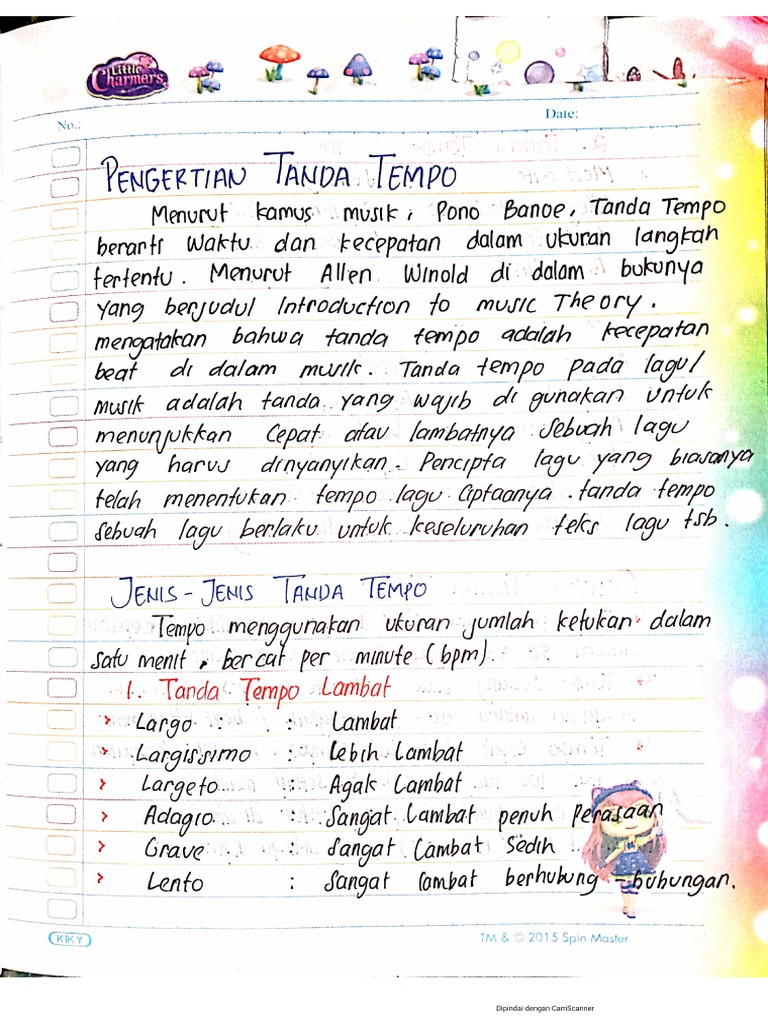 Little Charmers
No.:
Date:
PENGERTIAN TANDA TEMPO
Menurut kamus musik, Pono Banoe, Tanda Tempo
berarti waktu dan kecepatan dalam ukuran langkah
tertentu. Menurut Allen Winold di dalam bukunya
yang berjudul Introduction to music Theory.
mengatakan bahwa tanda tempo adalah kecepatan
beat di dalam musik. Tanda tempo pada lagu/
musik adalah tanda yang wajib di gunakan untuk
menunjukkan cepat atau lambatnya sebuah lagu
yang harus dinyanyikan. Pencipta lagu yang biasanya
telah menentukan tempo lagu ciptaanya. tanda tempo
sebuah lagu berlaku untuk keseluruhan teks lagu tsb.
JENIS-JENIS TANDA TEMPO
Tempo menggunakan ukuran jumlah ketukan dalam
satu menit, ber cat per minute (bpm).
1. Tanda Tempo Lambat
> Largo : Lambat
> Largissimo : Lebih Lambat
> Largeto : Agak Lambat
> Adagio : Sangat Lambat penuh perasaan
> Grave : Sangat Lambat Sedih
> Lento : Sangat lambat berhubung-bubungan.
KIKY
TM & © 2015 Spin Master
Dipindai dengan CamScanner